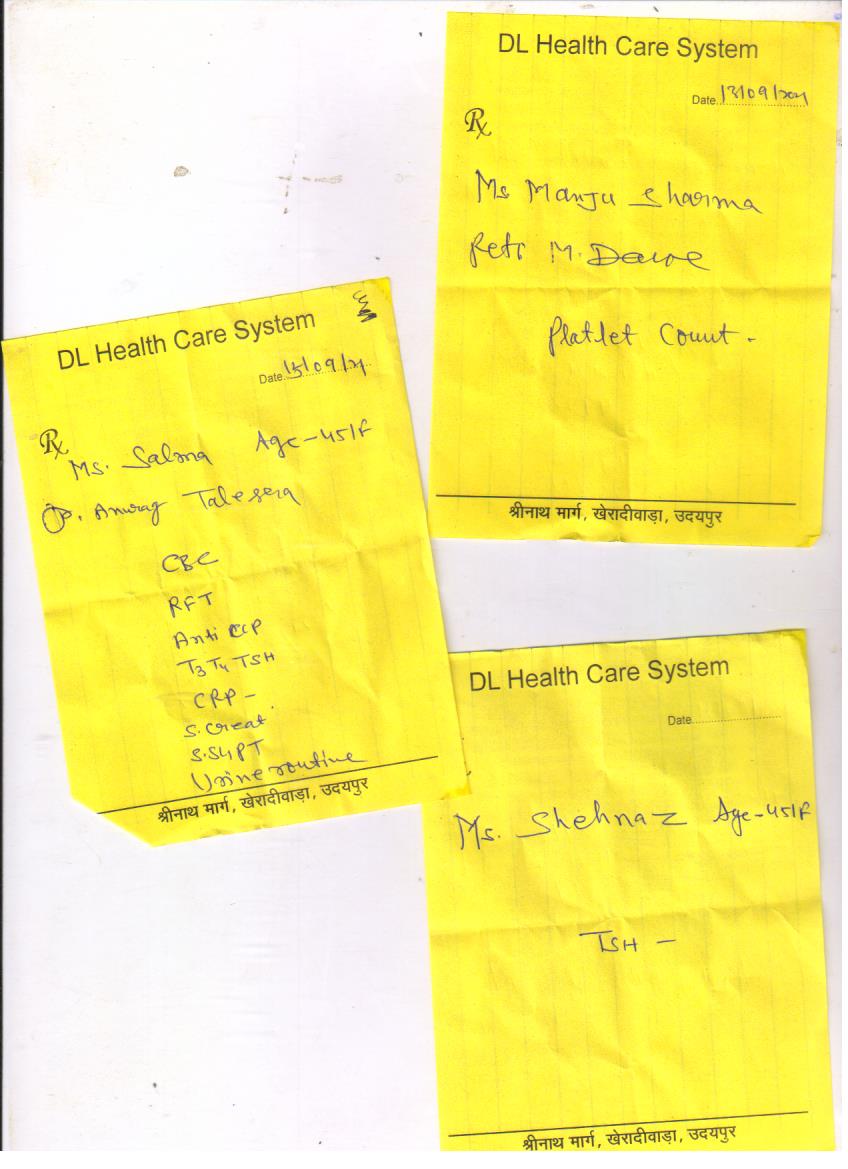 DL Health Care System
Date 13/09/2021
Rx
Ms Manju Sharma
M.
Platlet Count -
श्रीनाथ मार्ग, खेरादीवाड़ा, उदयपुर
DL Health Care System
Date 13/09/21
Rx
Ms. Salma Age-45/F
Anurag Talesera
CBC
RFT
Anti CCP
T3 T4 TSH
CRP -
S. Creat.
S.SGPT
Urine routine
श्रीनाथ मार्ग, खेरादीवाड़ा, उदयपुर
DL Health Care System
Date
Ms. Shehnaz Age-45/F
TSH -
श्रीनाथ मार्ग, खेरादीवाड़ा, उदयपुर